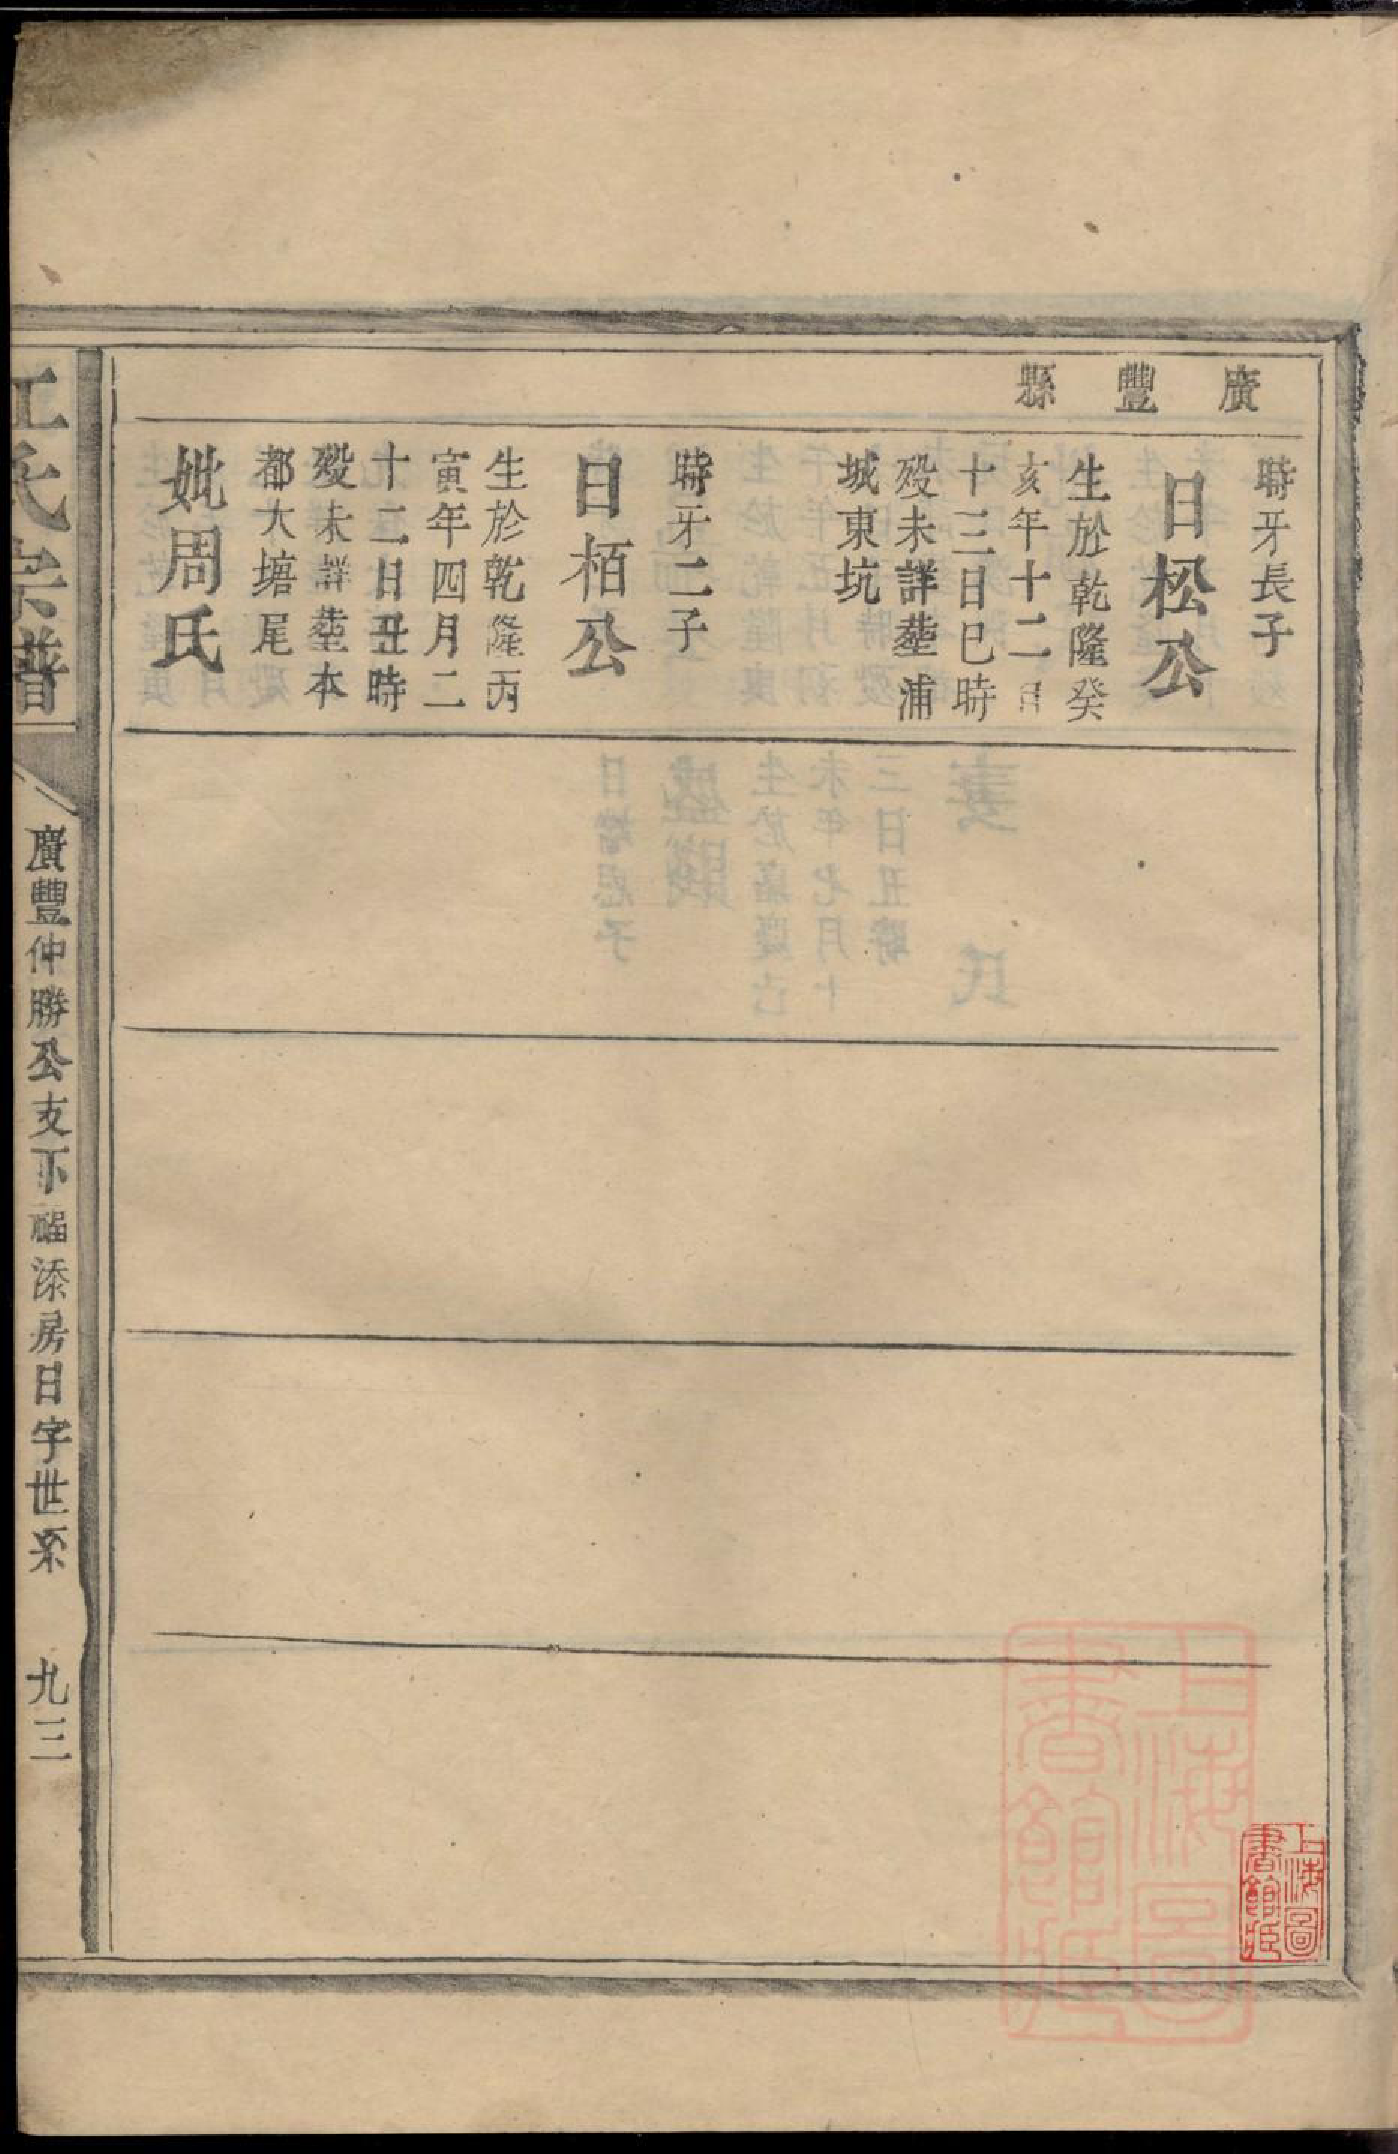 廣豐縣
聨牙長子
日松公
生於乾隆癸
亥年十二月
十三日巳時
殁未詳塟浦
城東坑
聨牙二子
日栢公
生於乾隆丙
寅年四月二
十二日丑時
殁未詳塟本
都大墙尾
妣周氏
江氏宗譜
廣豐仲勝公支下福添房日字世系
九三
上海圖書館藏